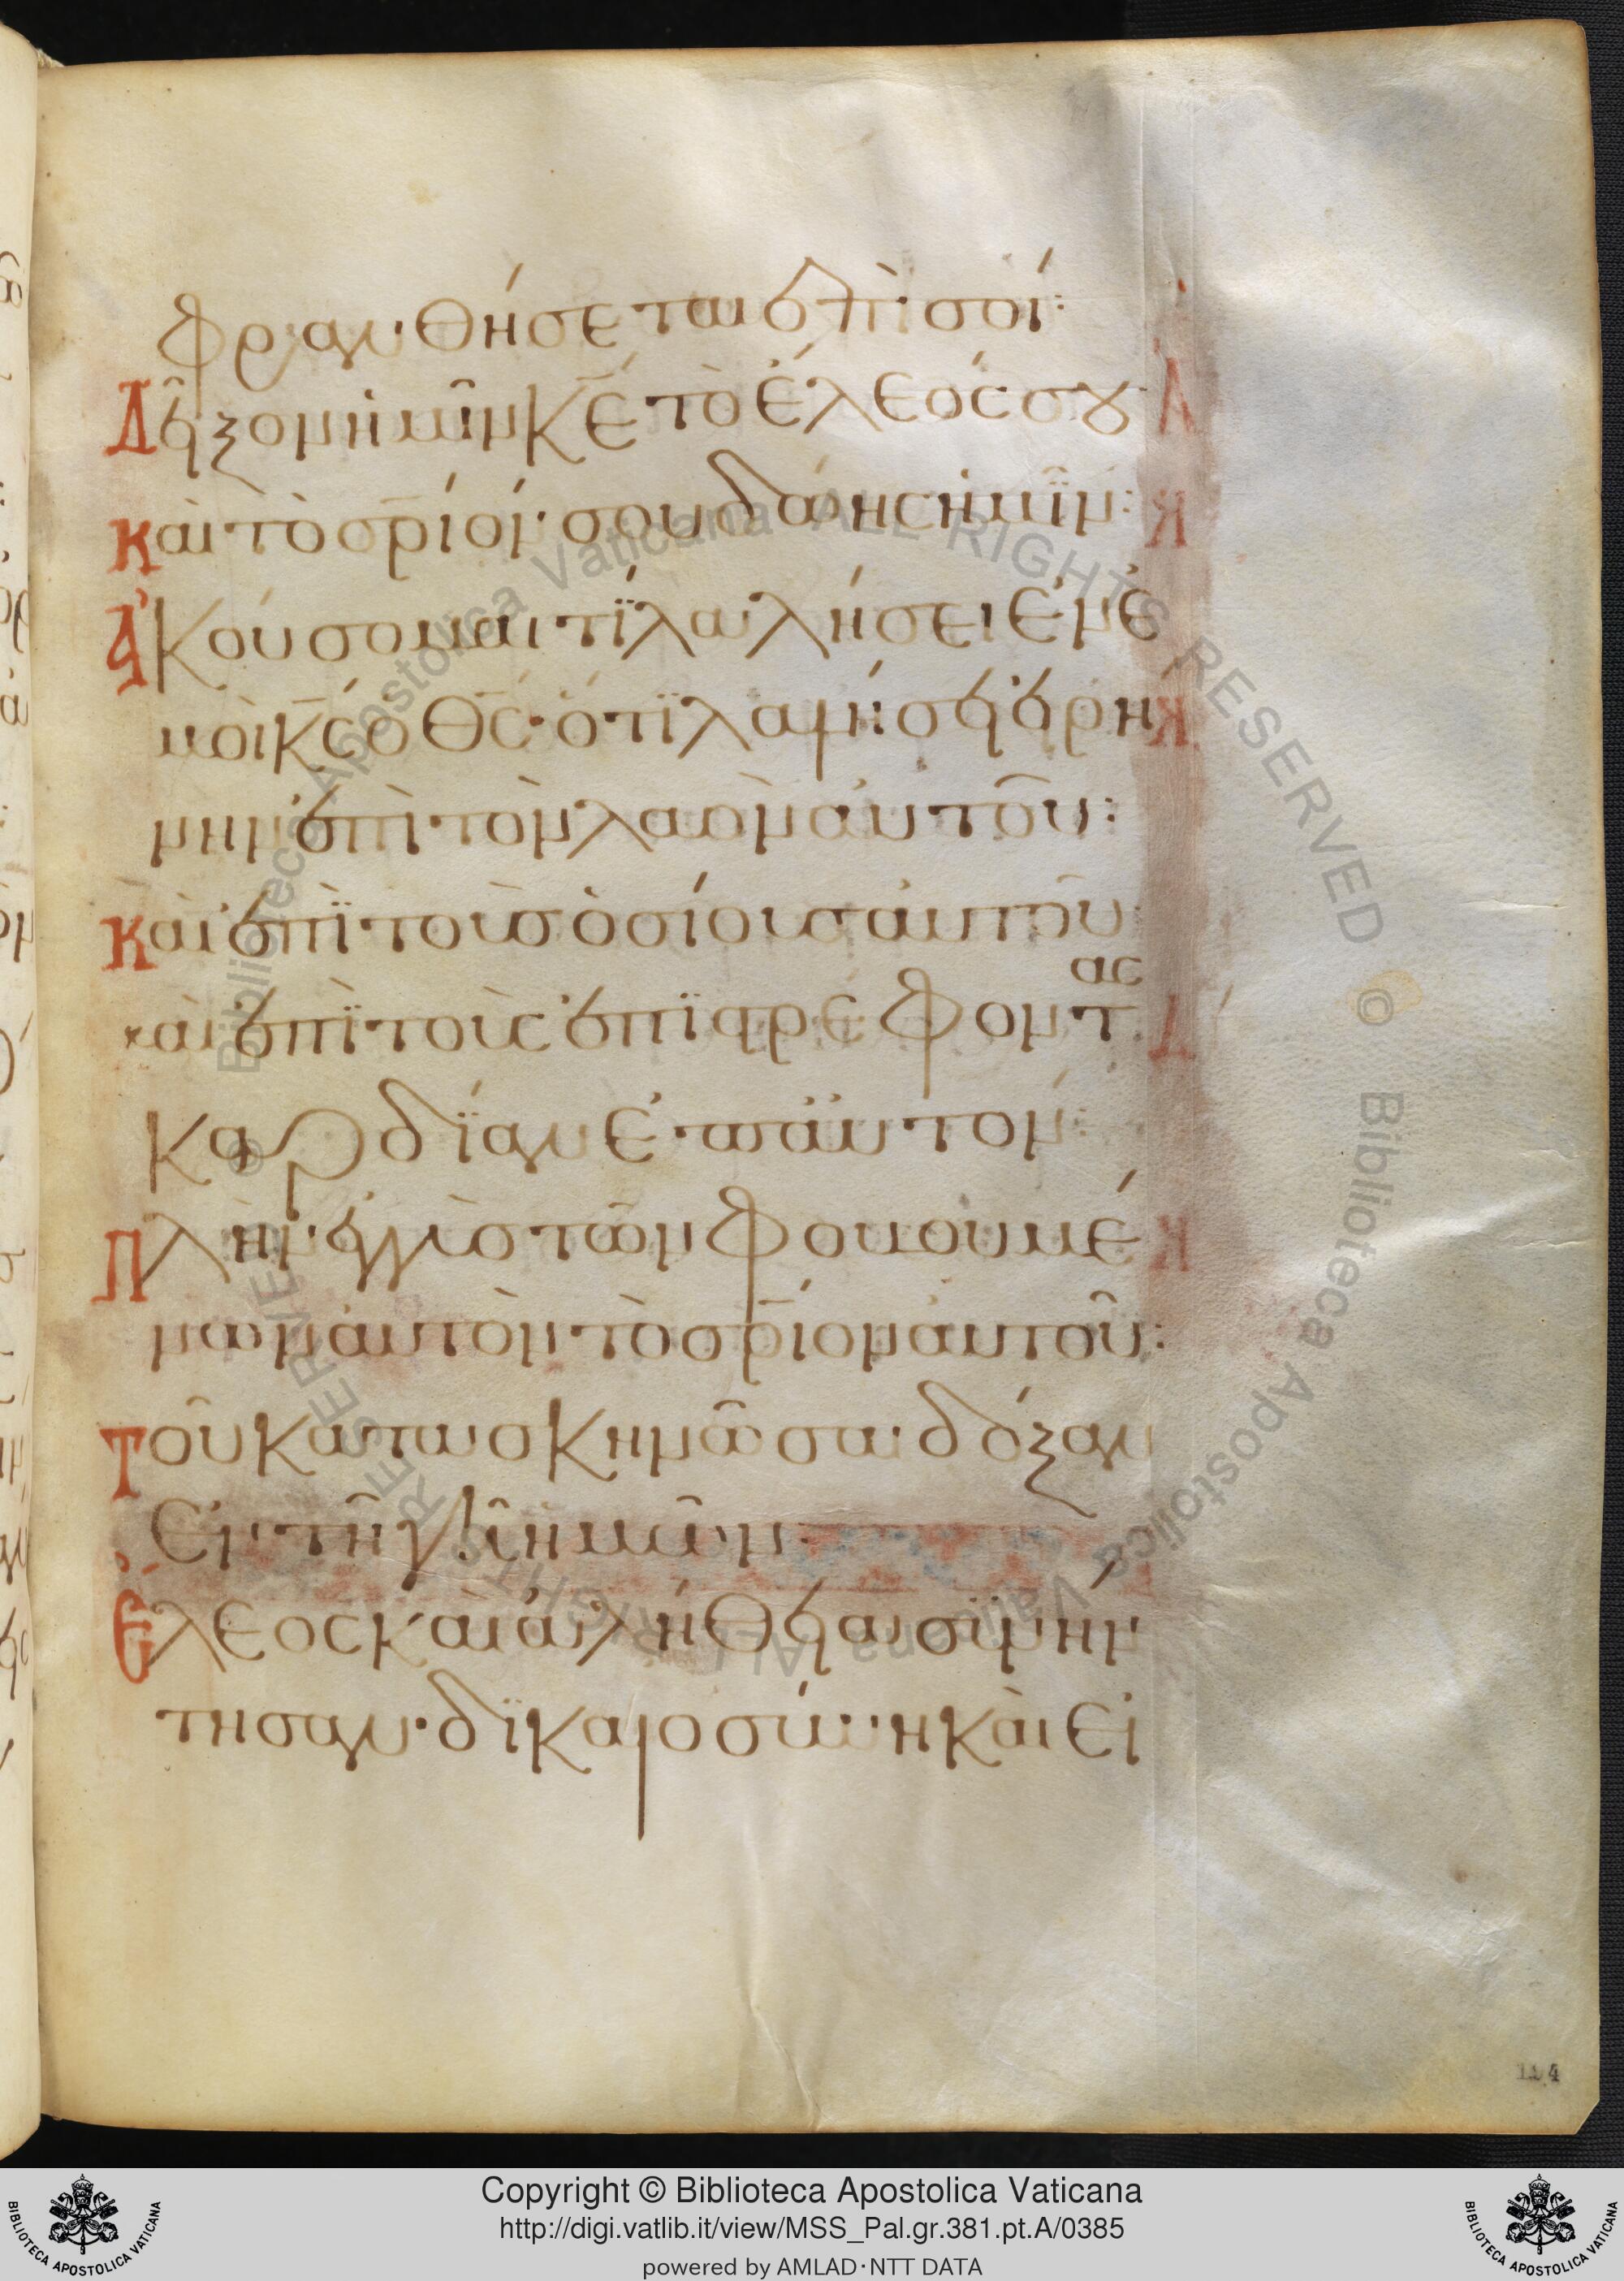 φραν·θήσεται ἐπὶ σοί:
Δεῖξον ἡμῖν κ̅ε̅ τὸ ἔλεός σȣ·
καὶ τὸ σ̅ρ̅ιόν· σου δώης ἡμῖν:
Ἀκούσομαι τί λαλήσει ἐμ ἐ
μοὶ κ̅ς̅ ὁ θ̅ς̅· ὅτι λαλήσει εἰρή
νην ἐπὶ τὸν λαὸν αὐτοῦ:
καὶ ἐπὶ τοὺσ ὁσίουσ αὐτοῦ
καὶ ἐπὶ τοὺς ἐπιστρέφοντας
καρδίαν ἐπ αὐτόν:
Πλὴν· ἐγγὺσ τῶν φοβουμέ
νων αὐτὸν τὸ σ̅ρ̅ιον αὐτοῦ:
Τοῦ κατασκηνῶσαι δόξαν
ἐν τῆ γῆ ἡμῶν·
Ἔλεος καὶ ἀλήθεια συνήν
τησαν· δικαιοσύνη καὶ εἰ
114
Copyright © Biblioteca Apostolica Vaticana
http://digi.vatlib.it/view/MSS_Pal.gr.381.pt.A/0385
powered by AMLAD·NTT DATA
BIBLIOTECA APOSTOLICA VATICANA
BIBLIOTECA APOSTOLICA VATICANA
© Biblioteca Apostolica Vaticana ALL RIGHTS RESERVED
© Biblioteca Apostolica Vaticana ALL RIGHTS RESERVED